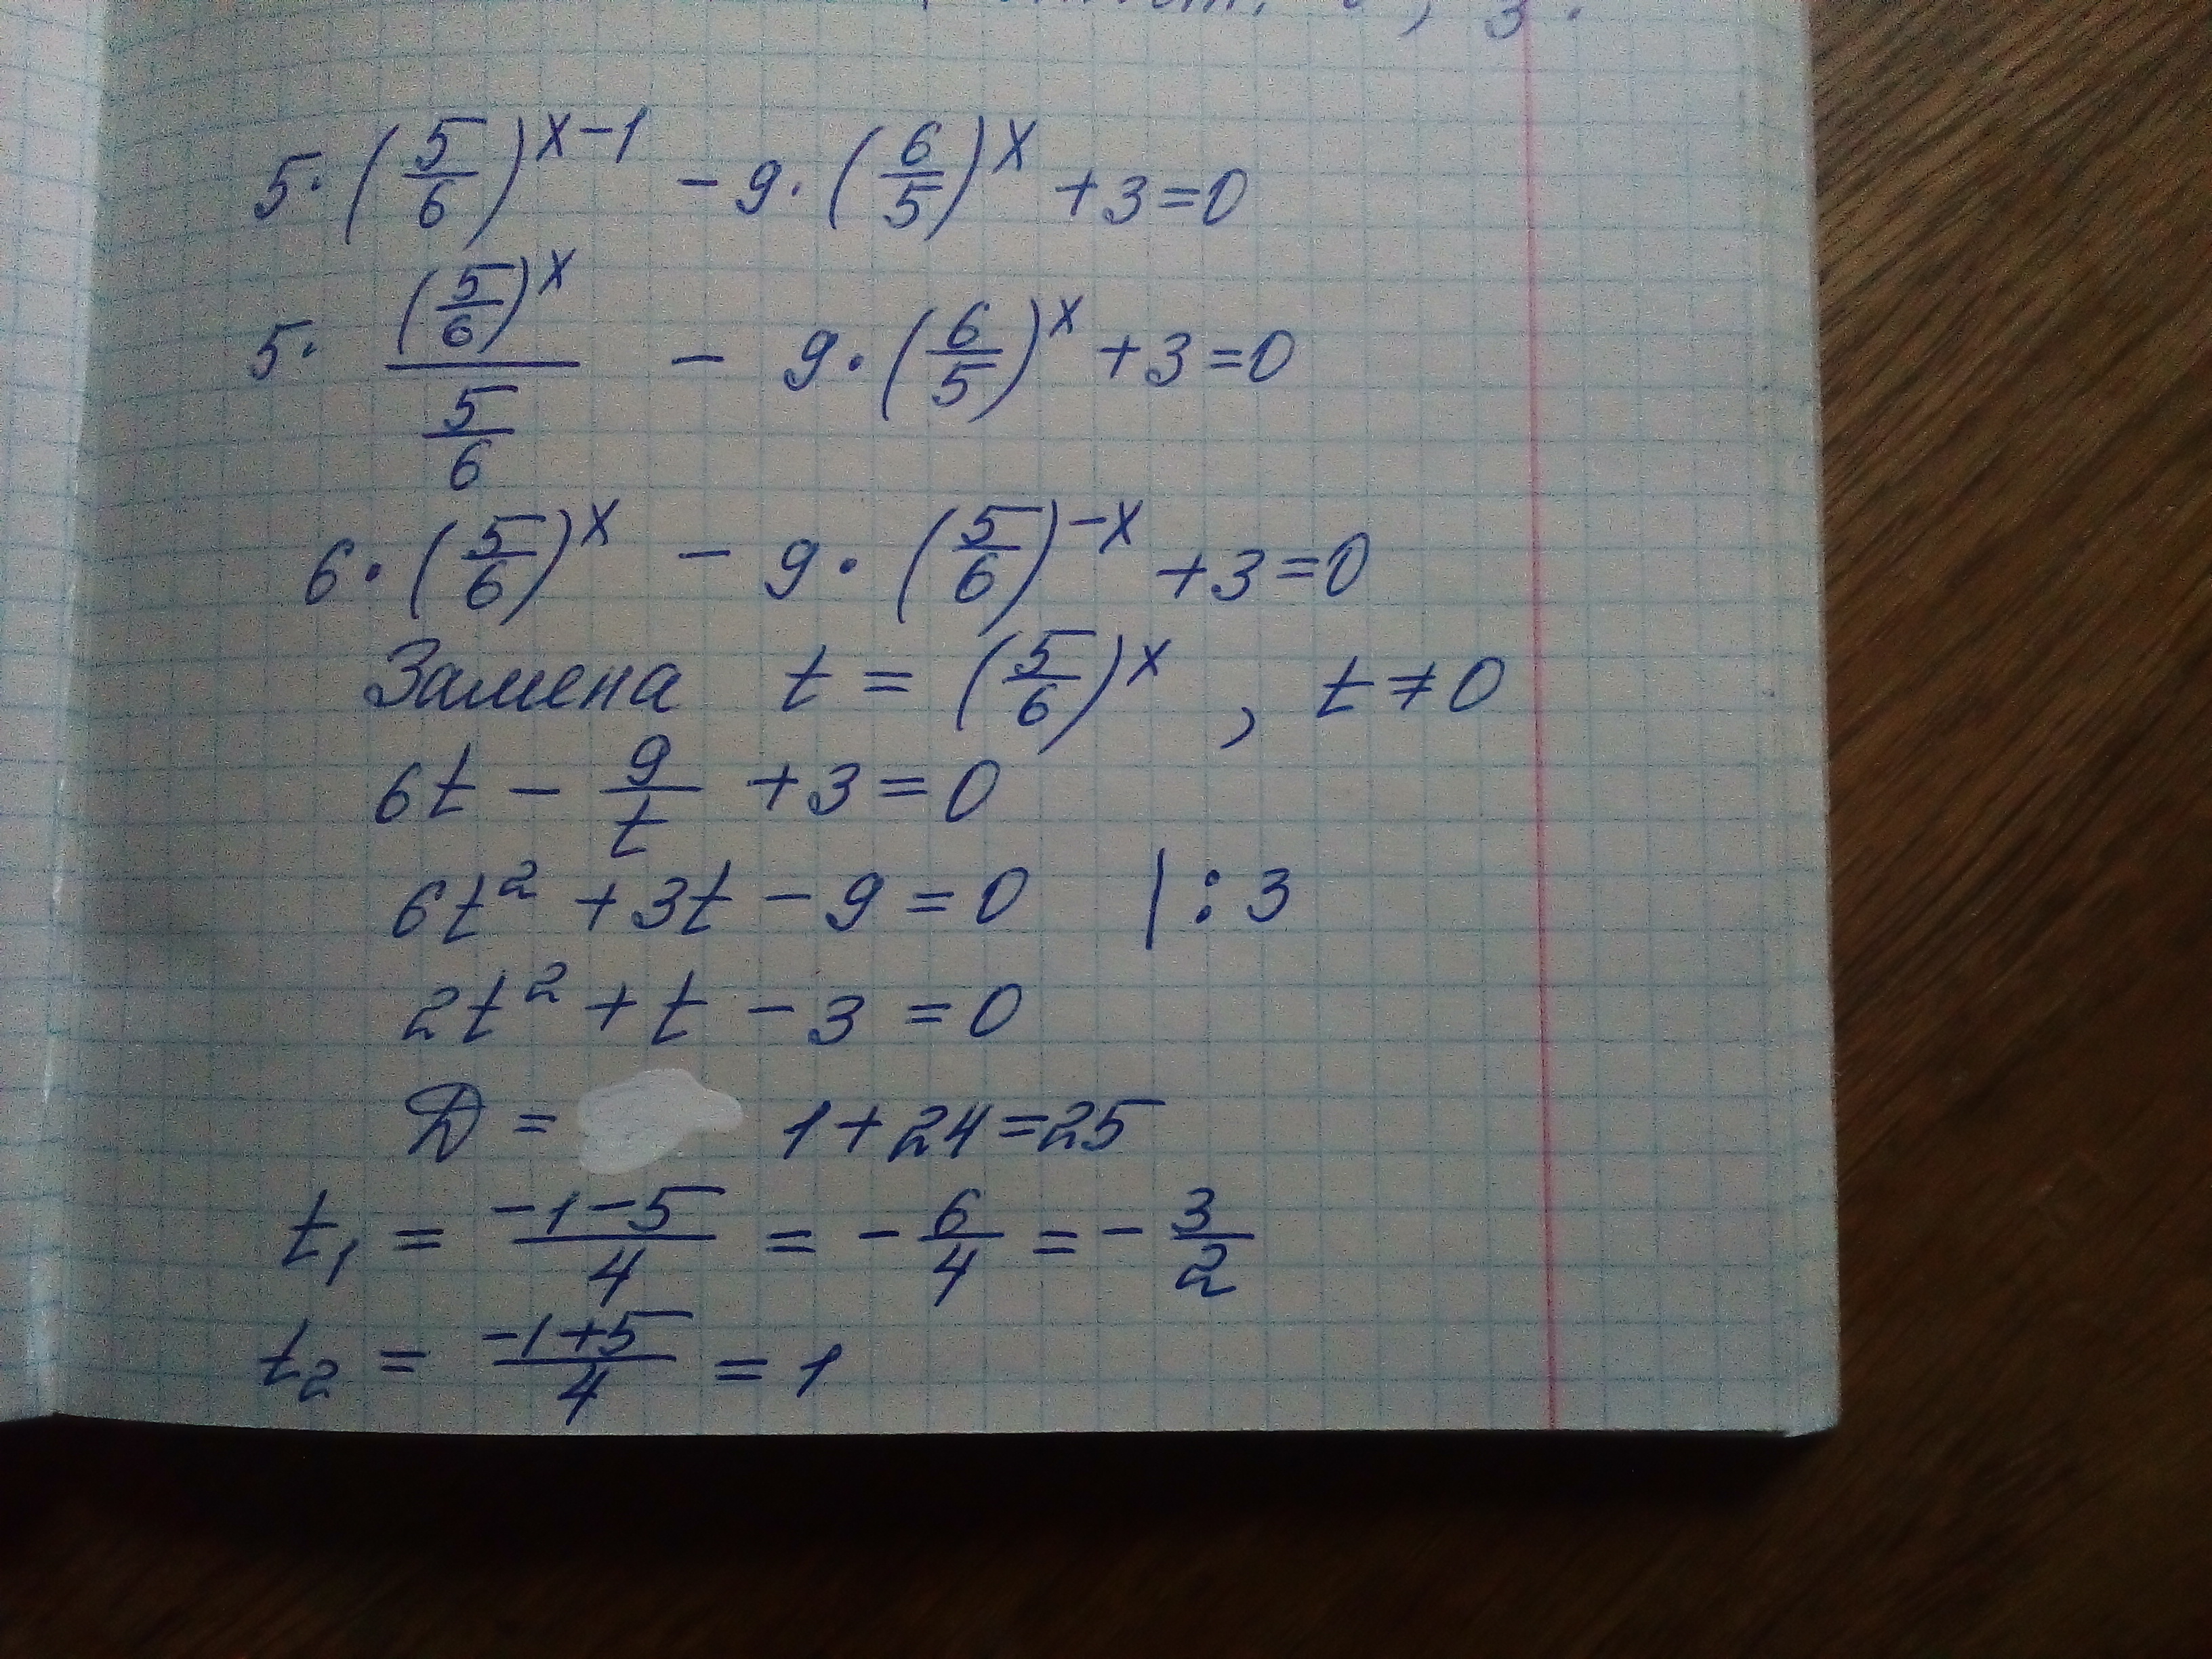 5·(5/6)^(x−1) − 9·(6/5)^x + 3 = 0
5·((5/6)^x)/(5/6) − 9·(6/5)^x + 3 = 0
6·(5/6)^x − 9·(5/6)^(−x) + 3 = 0
Замена t = (5/6)^x , t ≠ 0
6t − 9/t + 3 = 0
6t² + 3t − 9 = 0 | : 3
2t² + t − 3 = 0
D = 1 + 24 = 25
t₁ = (−1−5)/4 = −6/4 = −3/2
t₂ = (−1+5)/4 = 1